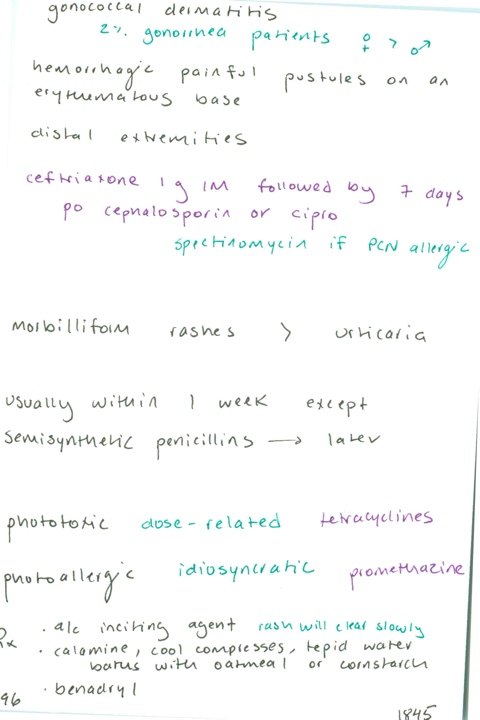 gonococcal dermatitis
2% gonorrhea patients ♀ > ♂
hemorrhagic painful pustules on an
erythematous base
distal extremities
ceftriaxone 1 g IM followed by 7 days
po cephalosporin or cipro
spectinomycin if PCN allergic
morbilliform rashes > urticaria
usually within 1 week except
semisynthetic penicillins → later
phototoxic dose-related tetracyclines
photoallergic idiosyncratic promethazine
Rx · d/c inciting agent rash will clear slowly
· calamine, cool compresses, tepid water
baths with oatmeal or cornstarch
· benadryl
96
1845